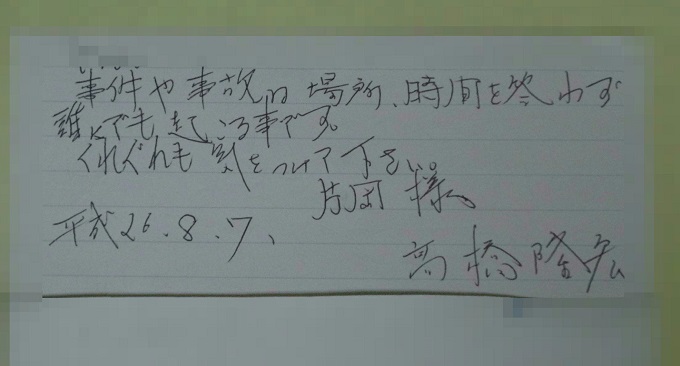 事件や事故は場所、時間を答わず
誰にでも起こる事です。
くれぐれも気をつけて下さい。
片岡様へ
平成26.8.7、
高橋隆宏